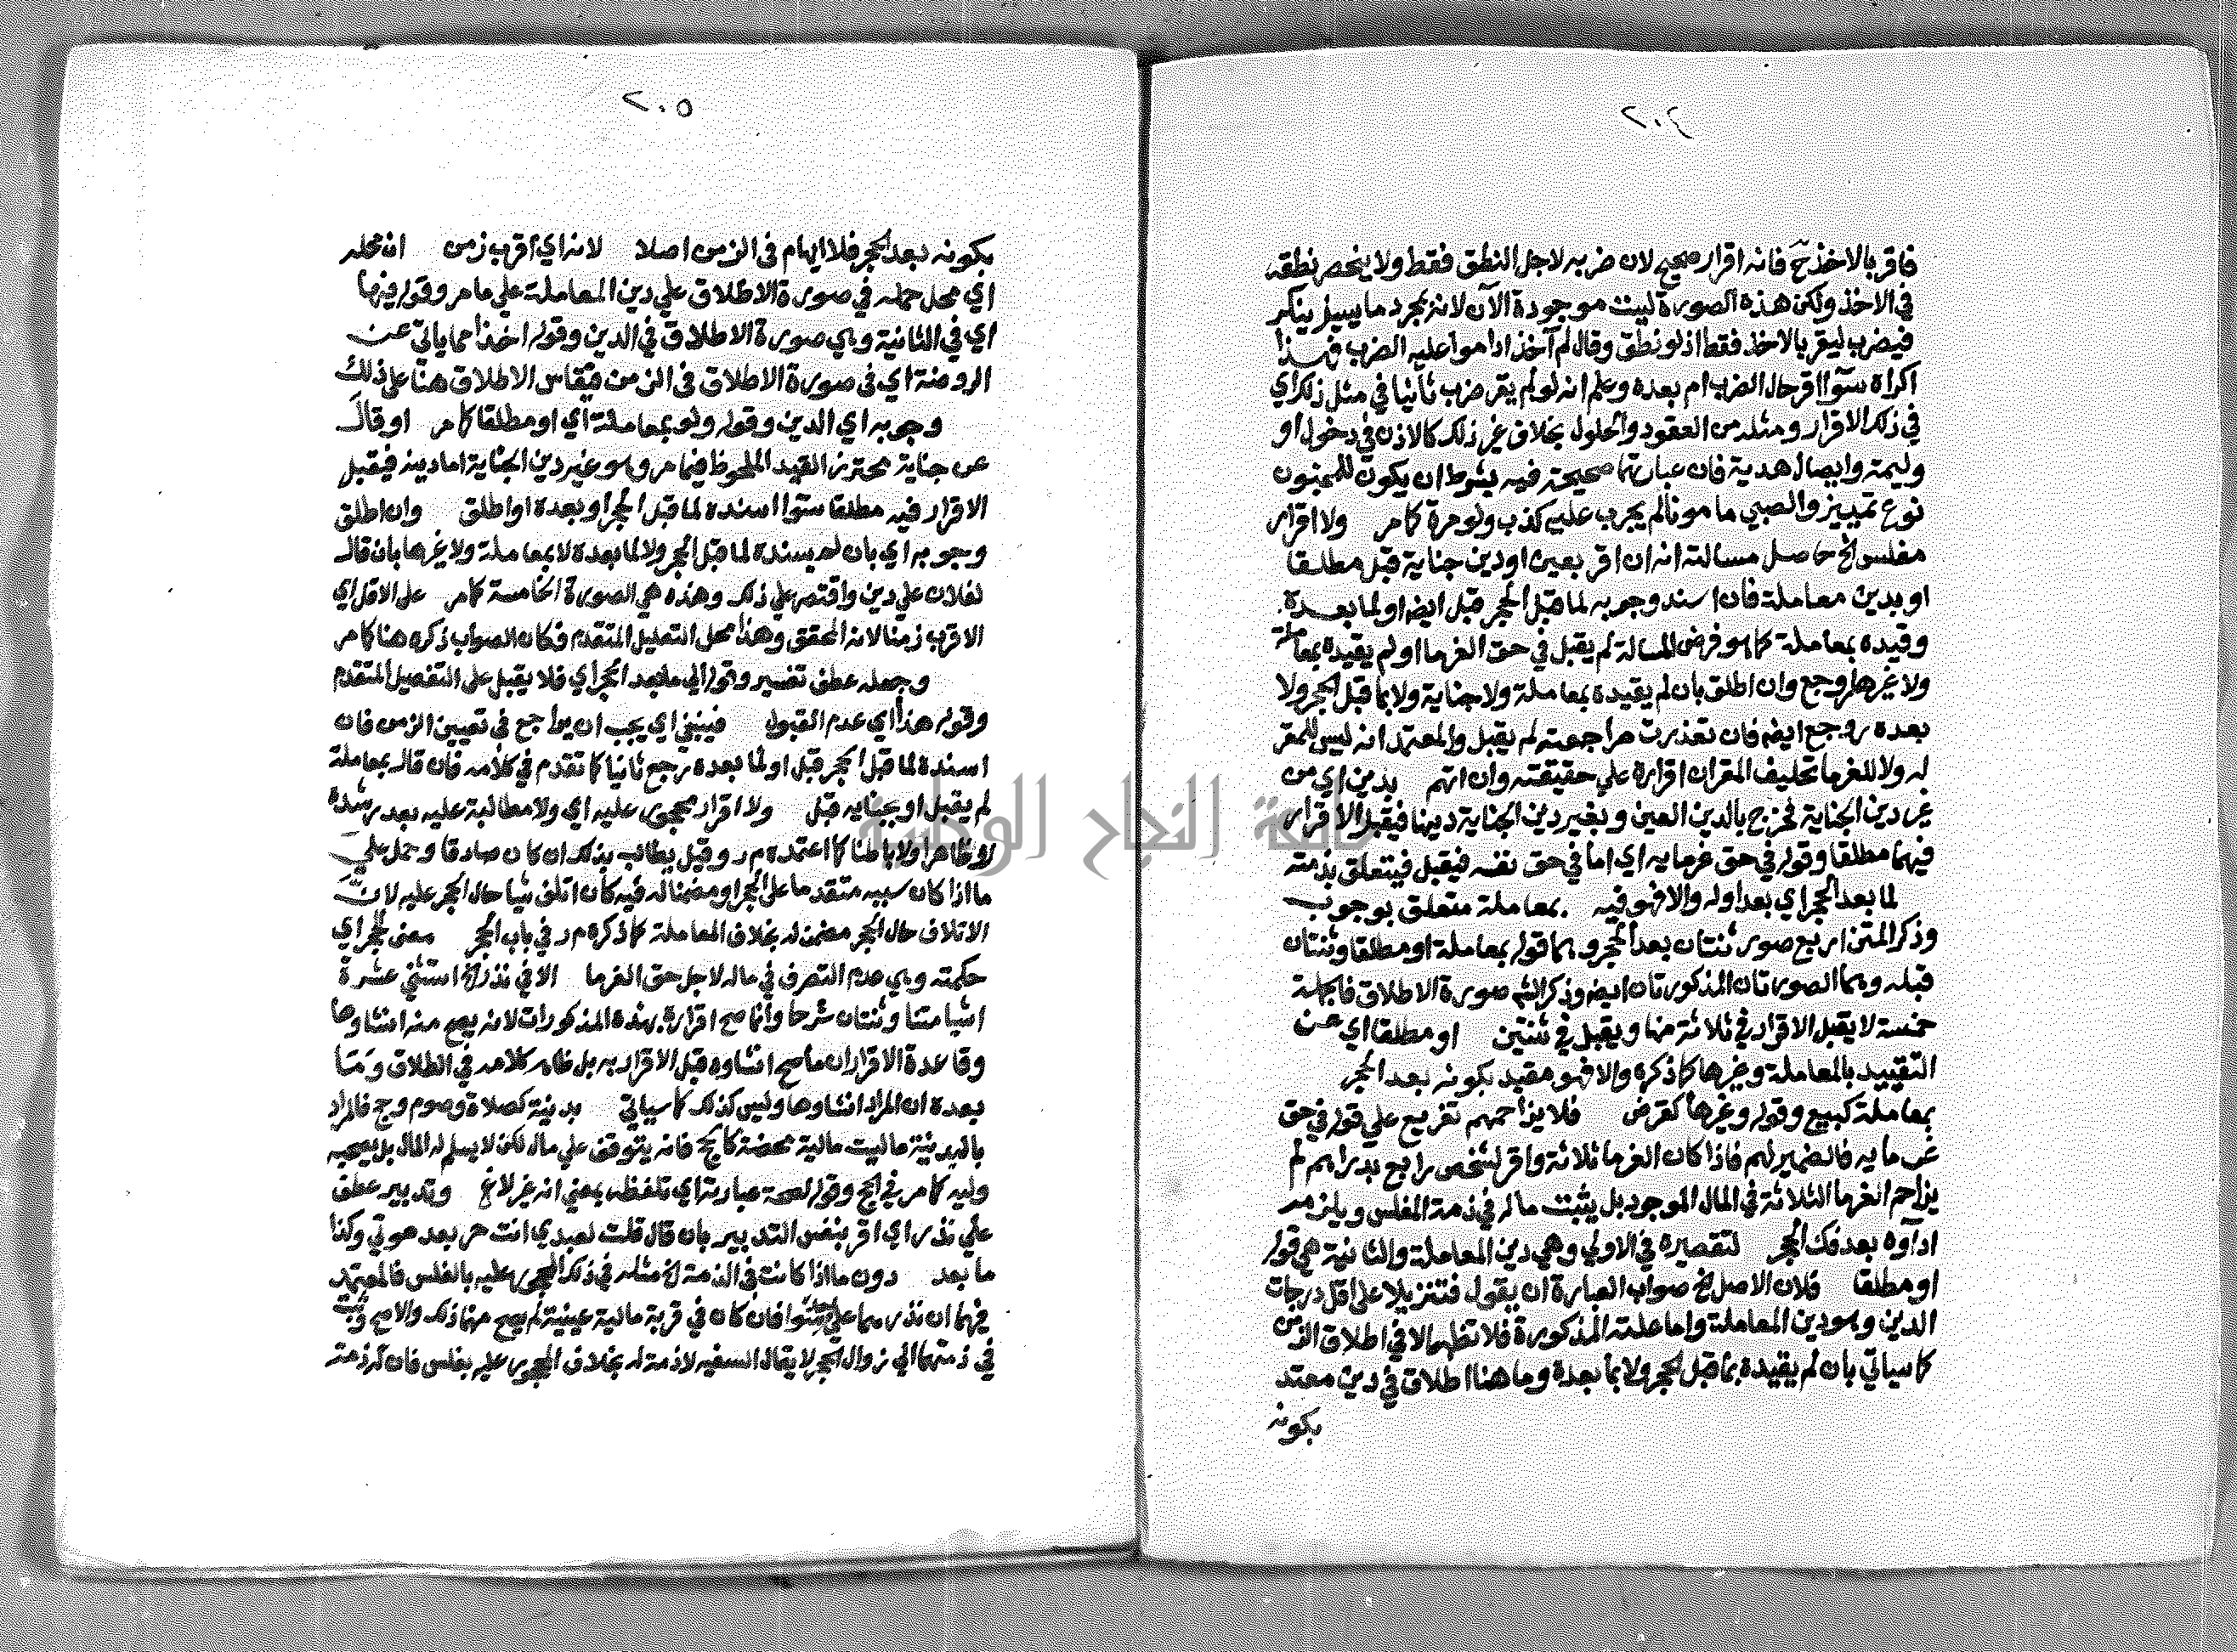 ٢٠٤
فاقر بالاخذ ح فانه اقرار صحيح لان ضربه لاجل النطق فقط ولا ينحصر نطقه
في الاخذ ولكن هذه الصورة ليست موجودة الآن لانه بمجرد ما يسئل ينكر
فيضرب ليقر بالاخذ فقط اذ لو نطق وقال لم آخذ اداموا عليه الضرب فهذا
اكراه سوا اقر حال الضرب ام بعده وعلم انه لو لم يقر ضرب ثانيا في مثل ذلك اي
في ذلك الاقرار ومثله من العقود والحلول بخلاف غير ذلك كالاذن في دخول او
وليمة وايصال هدية فان عبارتهما صحيحة فيه بشرط ان يكون للمجنون
نوع تمييز والصبي مامونا لم يجرب عليه كذب ولو مرة كما مر ولا اقرار
مفلس الخ حاصل مسالته انه ان اقر بعين او دين جناية قبل مطلقا
او بدين معاملة فان اسند وجوبه لما قبل الحجر قبل ايضا او لما بعده
وقيده بمعاملة كما هو فرض المسالة لم يقبل في حق الغرما او لم يقيده بمعاملة
ولا غيرها روجع وان اطلق بان لم يقيده بمعاملة ولا جناية ولا بما قبل الحجر ولا
بعده روجع ايضا فان تعذرت مراجعته لم يقبل والمعتمد انه ليس للمقر
له ولا للغرما تحليف المقر ان اقراره علي حقيقته وان اتهم بدين اي من
غير دين الجناية فخرج بالدين العين وبغير دين الجناية دينها فيقبل الاقرار
فيهما مطلقا وقوله في حق غرمايه اي اما في حق نفسه فيقبل فيتعلق بذمته
لما بعد الحجر اي بعد اوله والا فهو فيه بمعاملة متعلق بوجوب
وذكر المتن اربع صور ثنتان بعد الحجر وهما قوله بمعاملة او مطلقا وثنتان
قبله وهما الصورتان المذكورتان ايضا وذكر الشم صورة الاطلاق فالجملة
خمسة لا يقبل الاقرار في ثلاثة منها ويقبل في ثنتين او مطلقا اي عن
التقييد بالمعاملة وغيرها كما ذكره والا فهو مقيد بكونه بعد الحجر
بمعاملة كبيع وقوله وغيرها كقرض فلا يزاحمهم تفريع علي قوله في حق
غرمايه فالضمير لهم فاذا كان الغرما ثلاثة واقر لشخص رابع بدراهم لم
يزاحم الغرما الثلاثة في المال الموجود بل يثبت ماله في ذمة المفلس ويلزمه
اداوه بعد فك الحجر لتقصيره في الاولي وهي دين المعاملة والثانية هي قوله
او مطلقا فلان الاصل الخ صواب العبارة ان يقول فتنزيلا علي اقل درجات
الدين وهو دين المعاملة واما علته المذكورة فلا تظهر الا في اطلاق الزمن
كما سياتي بان لم يقيده بما قبل الحجر ولا بما بعده وما هنا اطلاق في دين معتد
بكونه
٢٠٥
بكونه بعد الحجر فلا ايهام في الزمن اصلا لانه اي اقرب زمن ان محله
اي محل حمله في صورة الاطلاق علي دين المعاملة علي ما مر وقوله فيها
اي في الثانية وهي صورة الاطلاق في الدين وقوله اخذا مما ياتي عن
الروضة اي في صورة الاطلاق في الزمن فقاس الاطلاق هنا علي ذلك
وجوبه اي الدين وقوله ولو بمعاملة اي او مطلقا كما مر او قال
عن جناية محترز القيد الملحوظ فيما مر وهو غير دين الجناية اما دينه فيقبل
الاقرار فيه مطلقا سوا اسنده لما قبل الحجر او بعده او اطلق وان اطلق
وجوبه اي بان لم يسنده لما قبل الحجر ولا لما بعده لا بمعاملة ولا غيرها بان قال
لفلان علي دين واقتصر علي ذلك وهذه هي الصورة الخامسة كما مر علي الاقل اي
الاقرب زمنا لانه المحقق وهذا محل التعليل المتقدم فكان الصواب ذكره هنا كما مر
وجعله عطف تفسير وقوله الي ما بعد الحجر اي فلا يقبل علي التفصيل المتقدم
وقوله هذا اي عدم القبول فينبغي اي يجب ان يراجع في تعيين الزمن فان
اسنده لما قبل الحجر قبل او لما بعده رجع ثانيا كما تقدم في كلامه فان قال بمعاملة
لم يقبل او بجنايه قبل ولا اقرار محجور عليه اي ولا مطالبة عليه بعد رشده
لا ظاهرا ولا باطنا كما اعتمده م ر وقيل يطالب بذلك ان كان صادقا وحمل علي
ما اذا كان سببه متقدما علي الحجر او مضمنا له فيه كان اتلف شيا حال الحجر عليه لان
الاتلاف حال الحجر مضمن له بخلاف المعاملة كما ذكره م ر في باب الحجر معني الحجر اي
حكمته وهي عدم التصرف في ماله لاجل حق الغرما الا في نذر الخ استثني عشرة
اشيا متنا وثنتان شرحا وانما صح اقراره بهذه المذكورات لانه يصح منه انشاوها
وقاعدة الاقرار ان ما صح انشاوه قبل الاقرار به بل ظاهر كلامه في الطلاق وما
بعده ان المراد انشاوها وليس كذلك كما سياتي بدنية كصلاة وصوم وحج فالمراد
بالبدنية ما ليست مالية محضة كالحج فانه يتوقف علي مال لكن لا يسلم له المال بل يصحبه
وليه كما مر في الحج وقوله لصحة عبارته اي تلفظه بمعني انه غير لاغ وتدبير عطف
علي نذر اي اقر بنفس التدبير بان قال قلت لعبدي انت حر بعد موتي وكذا
ما بعد دون ما اذا كانت في الذمة الخ مثله في ذلك المحجور عليه بالفلس فالمعتمد
فيهما ان نذرهما علي حد سوا فان كان في قربة مالية عينية لم يصح منهما ذلك والا صح وثبت
في ذمتهما الي زوال الحجر لا يقال السفيه لا ذمة له بخلاف المحجور عليه بفلس فان له ذمة
جامعة النجاح الوطنية